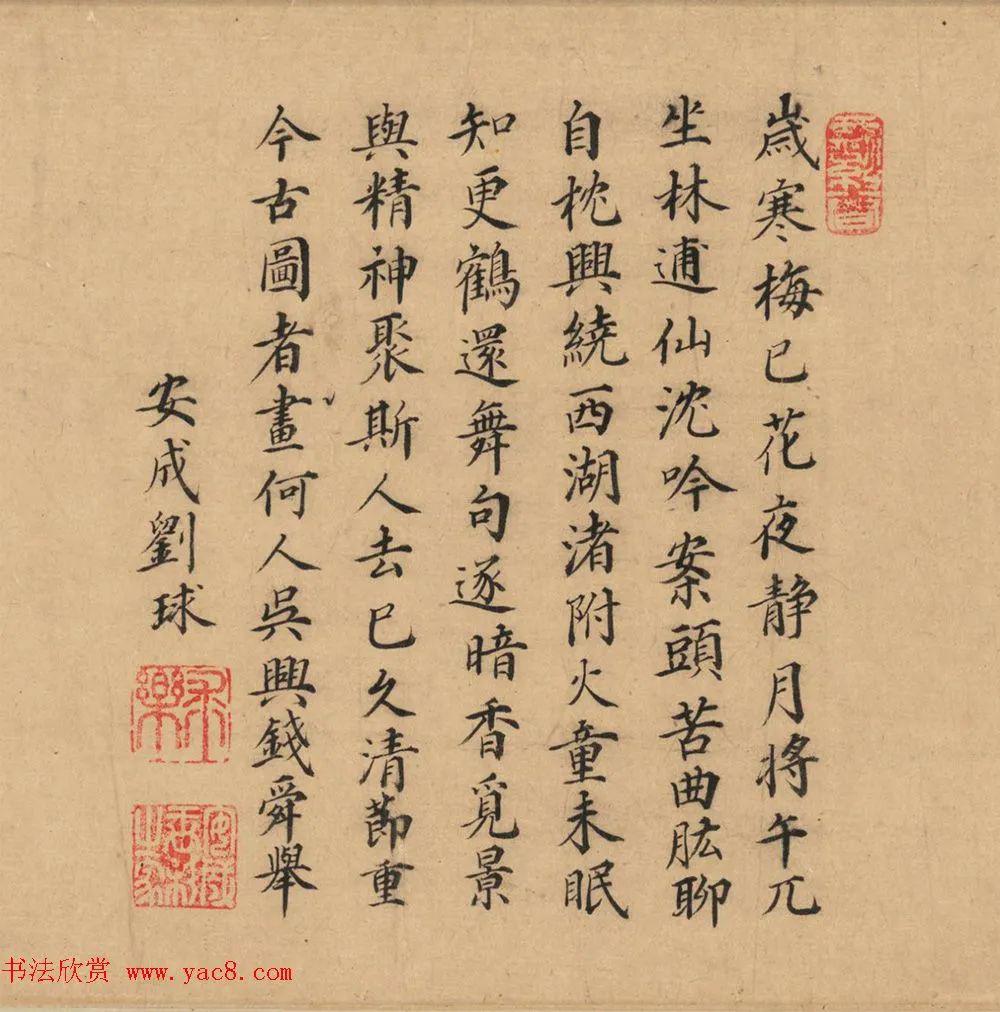 歲寒梅已花夜静月將午兀
坐林逋仙沈吟案頭苦曲肱聊
自枕興繞西湖渚附火童未眠
知更鶴還舞句逐暗香覓景
與精神聚斯人去已久清節重
今古圖者畫何人吳興錢舜舉
安成劉球
书法欣赏 www.yac8.com